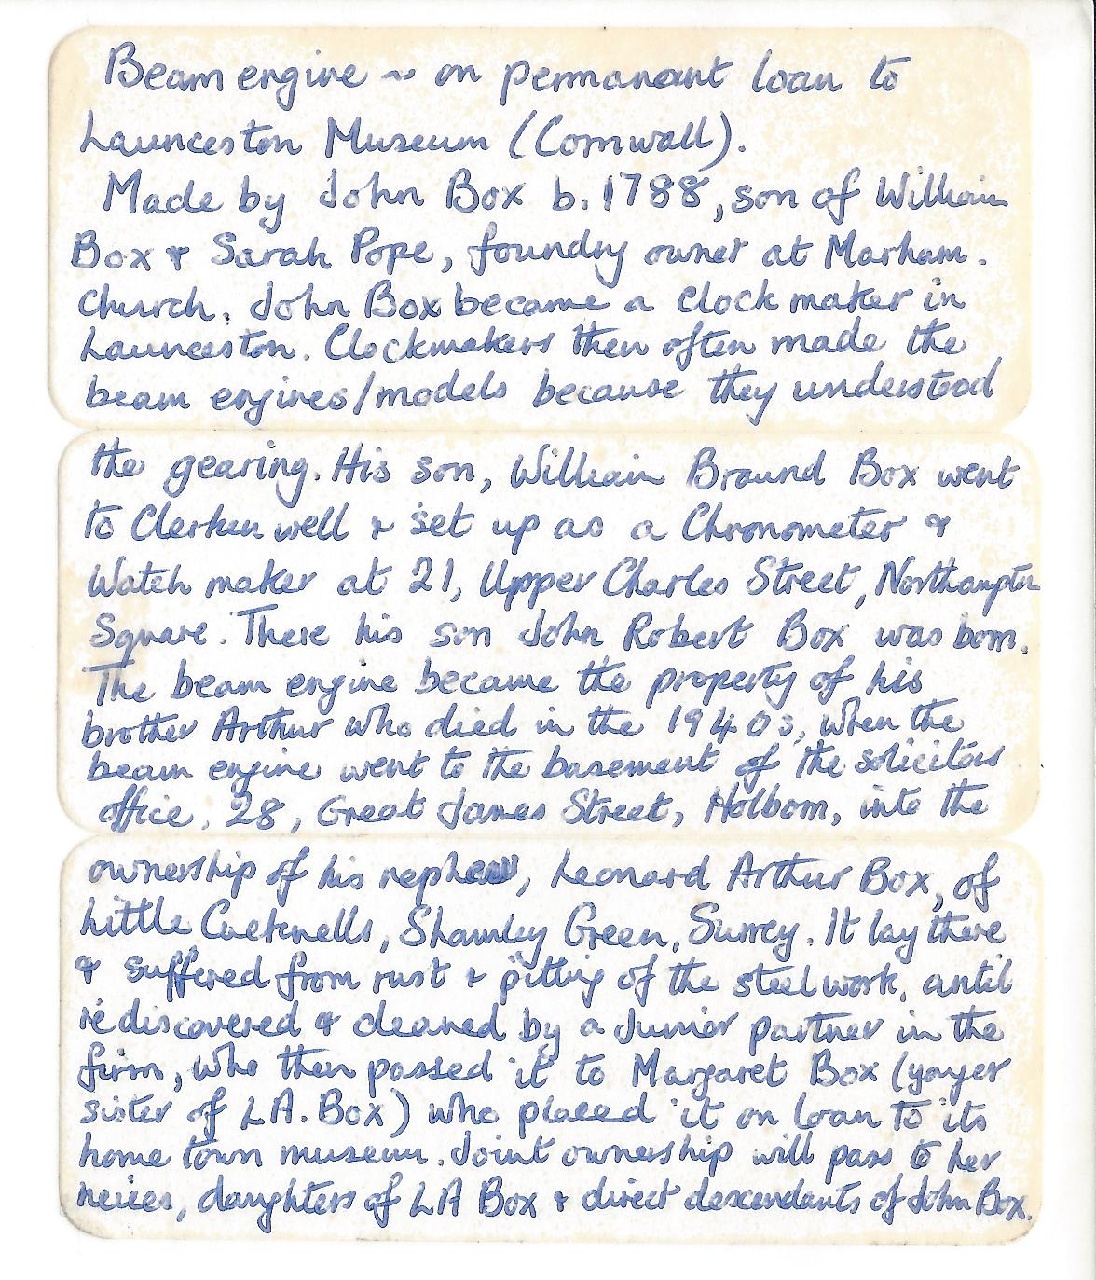 Beam engine ~ on permanant loan to
Launceston Museum (Cornwall).
Made by John Box b. 1788, son of William
Box & Sarah Pope, foundry owner at Marham.
Church. John Box became a clock maker in
Launceston. Clockmakers then often made the
beam engines/models because they understood
the gearing. His son, William Braund Box went
to Clerkenwell & set up as a Chronometer &
Watch maker at 21, Upper Charles Street, Northampton
Square. There his son John Robert Box was born.
The beam engine became the property of his
brother Arthur who died in the 1940s, when the
beam engine went to the basement of the solicitors
office, 28, Great James Street, Holborn, into the
ownership of his nephew, Leonard Arthur Box, of
Little Cucknells, Shamley Green, Surrey. It lay there
& suffered from rust & pitting of the steelwork, until
rediscovered & cleaned by a Junior partner in the
firm, who then passed it to Margaret Box (ygyer
sister of L.A. Box) who placed it on loan to its
home town museum. Joint ownership will pass to her
neices, daughters of LA Box & direct descendants of John Box.